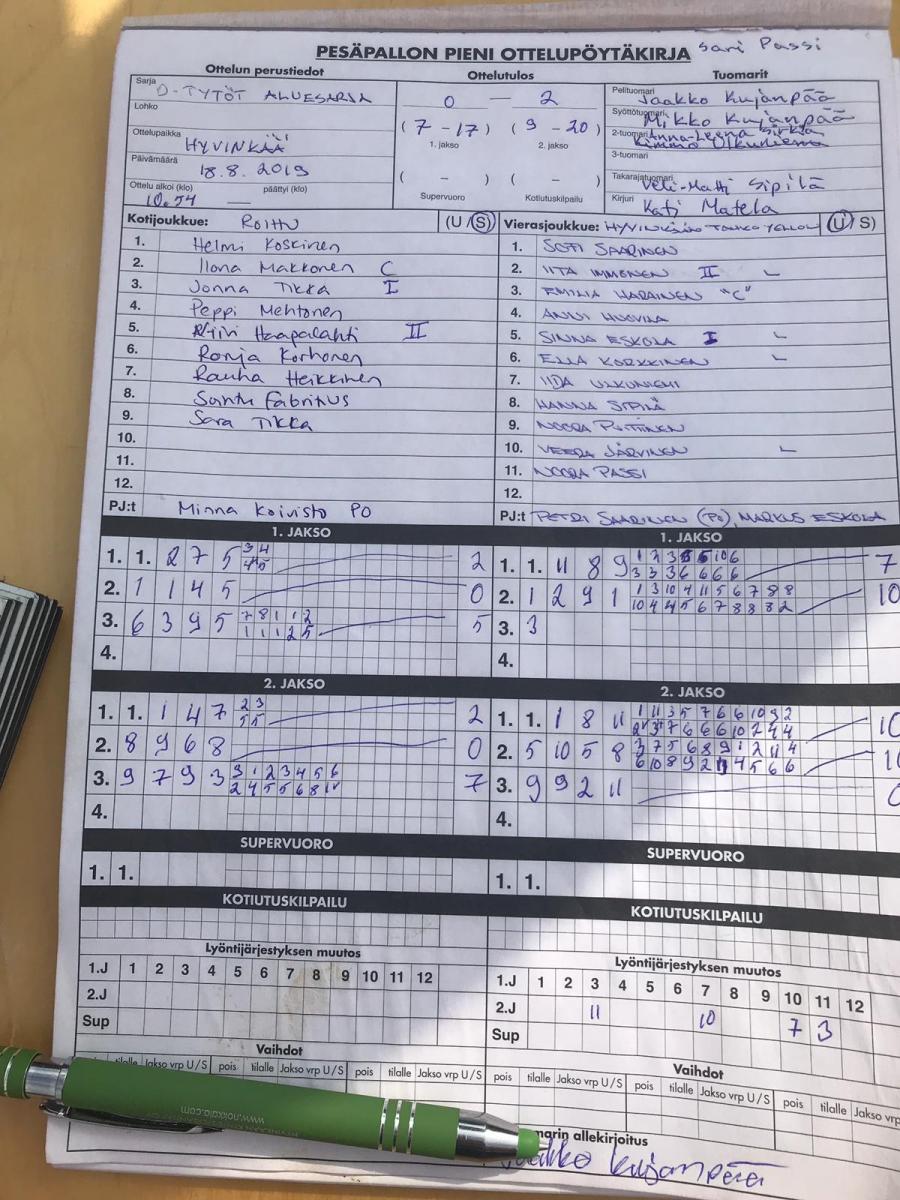 PESÄPALLON PIENI OTTELUPÖYTÄKIRJA Sari Passi
Ottelun perustiedot Ottelutulos Tuomarit
Sarja D-TYTÖT ALUESARJA
Lohko
Ottelupaikka HYVINKÄÄ
Päivämäärä 18.8.2019
Ottelu alkoi (klo) päättyi (klo)
10.54 —
0 — 2
(7-17) (9-20)
1. jakso 2. jakso
( - ) ( - )
Supervuoro Kotiutuskilpailu
Pelituomari Jaakko Kujanpää
Syöttötuomari Mikko Kujanpää
2-tuomari Anna-Leena
Kimmo Ulkuniemi
3-tuomari
Takarajatuomari Veli-Matti Sipilä
Kirjuri Kati Matela
Kotijoukkue: ROIHU (U/S)
1. Helmi Koskinen
2. Ilona Makkonen C
3. Jonna Tikka I
4. Peppi Mehtonen
5. Haapalahti II
6. Ronja Korhonen
7. Rauha Heikkinen
8. Santu Fabritius
9. Sara Tikka
10.
11.
12.
PJ:t Minna Koivisto PO
Vierasjoukkue: HYVINKÄÄN TAHKO YELLOW (U/S)
1. SOFI SAARINEN
2. IITA IMMONEN II L
3. EMILIA HARAINEN "C"
4. ANNI HUOVILA
5. SINNA ESKOLA I L
6. ELLA KORKKINEN L
7. IIDA ULKUNIEMI
8. HANNA SIPILÄ
9. NOORA PUTTINEN
10. VEERA JÄRVINEN L
11. NOORA PASSI
12.
PJ:t PETRI SAARINEN (PO), MARKUS ESKOLA
1. JAKSO
1. 1. 2 7 5 3 4 2
4 5
2. 1 1 4 5 0
3. 6 3 9 5 7 8 1 1 2 5
1 1 1 2 5
4.
1. JAKSO
1. 1. 11 8 9 1 2 3 5 5 10 6 7
3 3 3 6 6 6 6
2. 1 2 9 1 1 3 10 4 11 5 6 7 8 8 10
10 4 4 5 6 7 8 8 8 2
3. 3
4.
2. JAKSO
1. 1. 1 4 7 2 3 2
5 5
2. 8 9 6 8 0
3. 9 7 9 3 3 1 2 3 4 5 6 7
2 4 5 5 6 8
4.
2. JAKSO
1. 1. 1 8 11 1 11 3 5 7 6 6 10 9 2 10
2 3 7 6 6 6 10 2 4 4
2. 5 10 5 8 3 7 5 6 8 9 1 2 11 4
6 10 8 9 2 4 5 6 6
3. 9 9 2 11 0
4.
SUPERVUORO
1. 1.
SUPERVUORO
1. 1.
KOTIUTUSKILPAILU
KOTIUTUSKILPAILU
Lyöntijärjestyksen muutos
1.J 1 2 3 4 5 6 7 8 9 10 11 12
2.J
Sup
Lyöntijärjestyksen muutos
1.J 1 2 3 4 5 6 7 8 9 10 11 12
2.J 11 10 7 3
Sup
Vaihdot
tilalle Jakso vrp U/S pois tilalle Jakso vrp U/S pois tilalle Jakso vrp U/S
Vaihdot
pois tilalle Jakso vrp U/S pois tilalle Jakso vrp U/S pois tilalle Jakso vrp
marin allekirjoitus
Jaakko Kujanpää